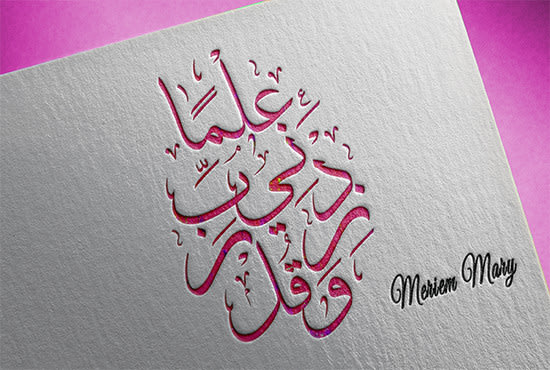 وَقُل رَّبِّ زِدْنِي عِلْمًا
Meriem Mary